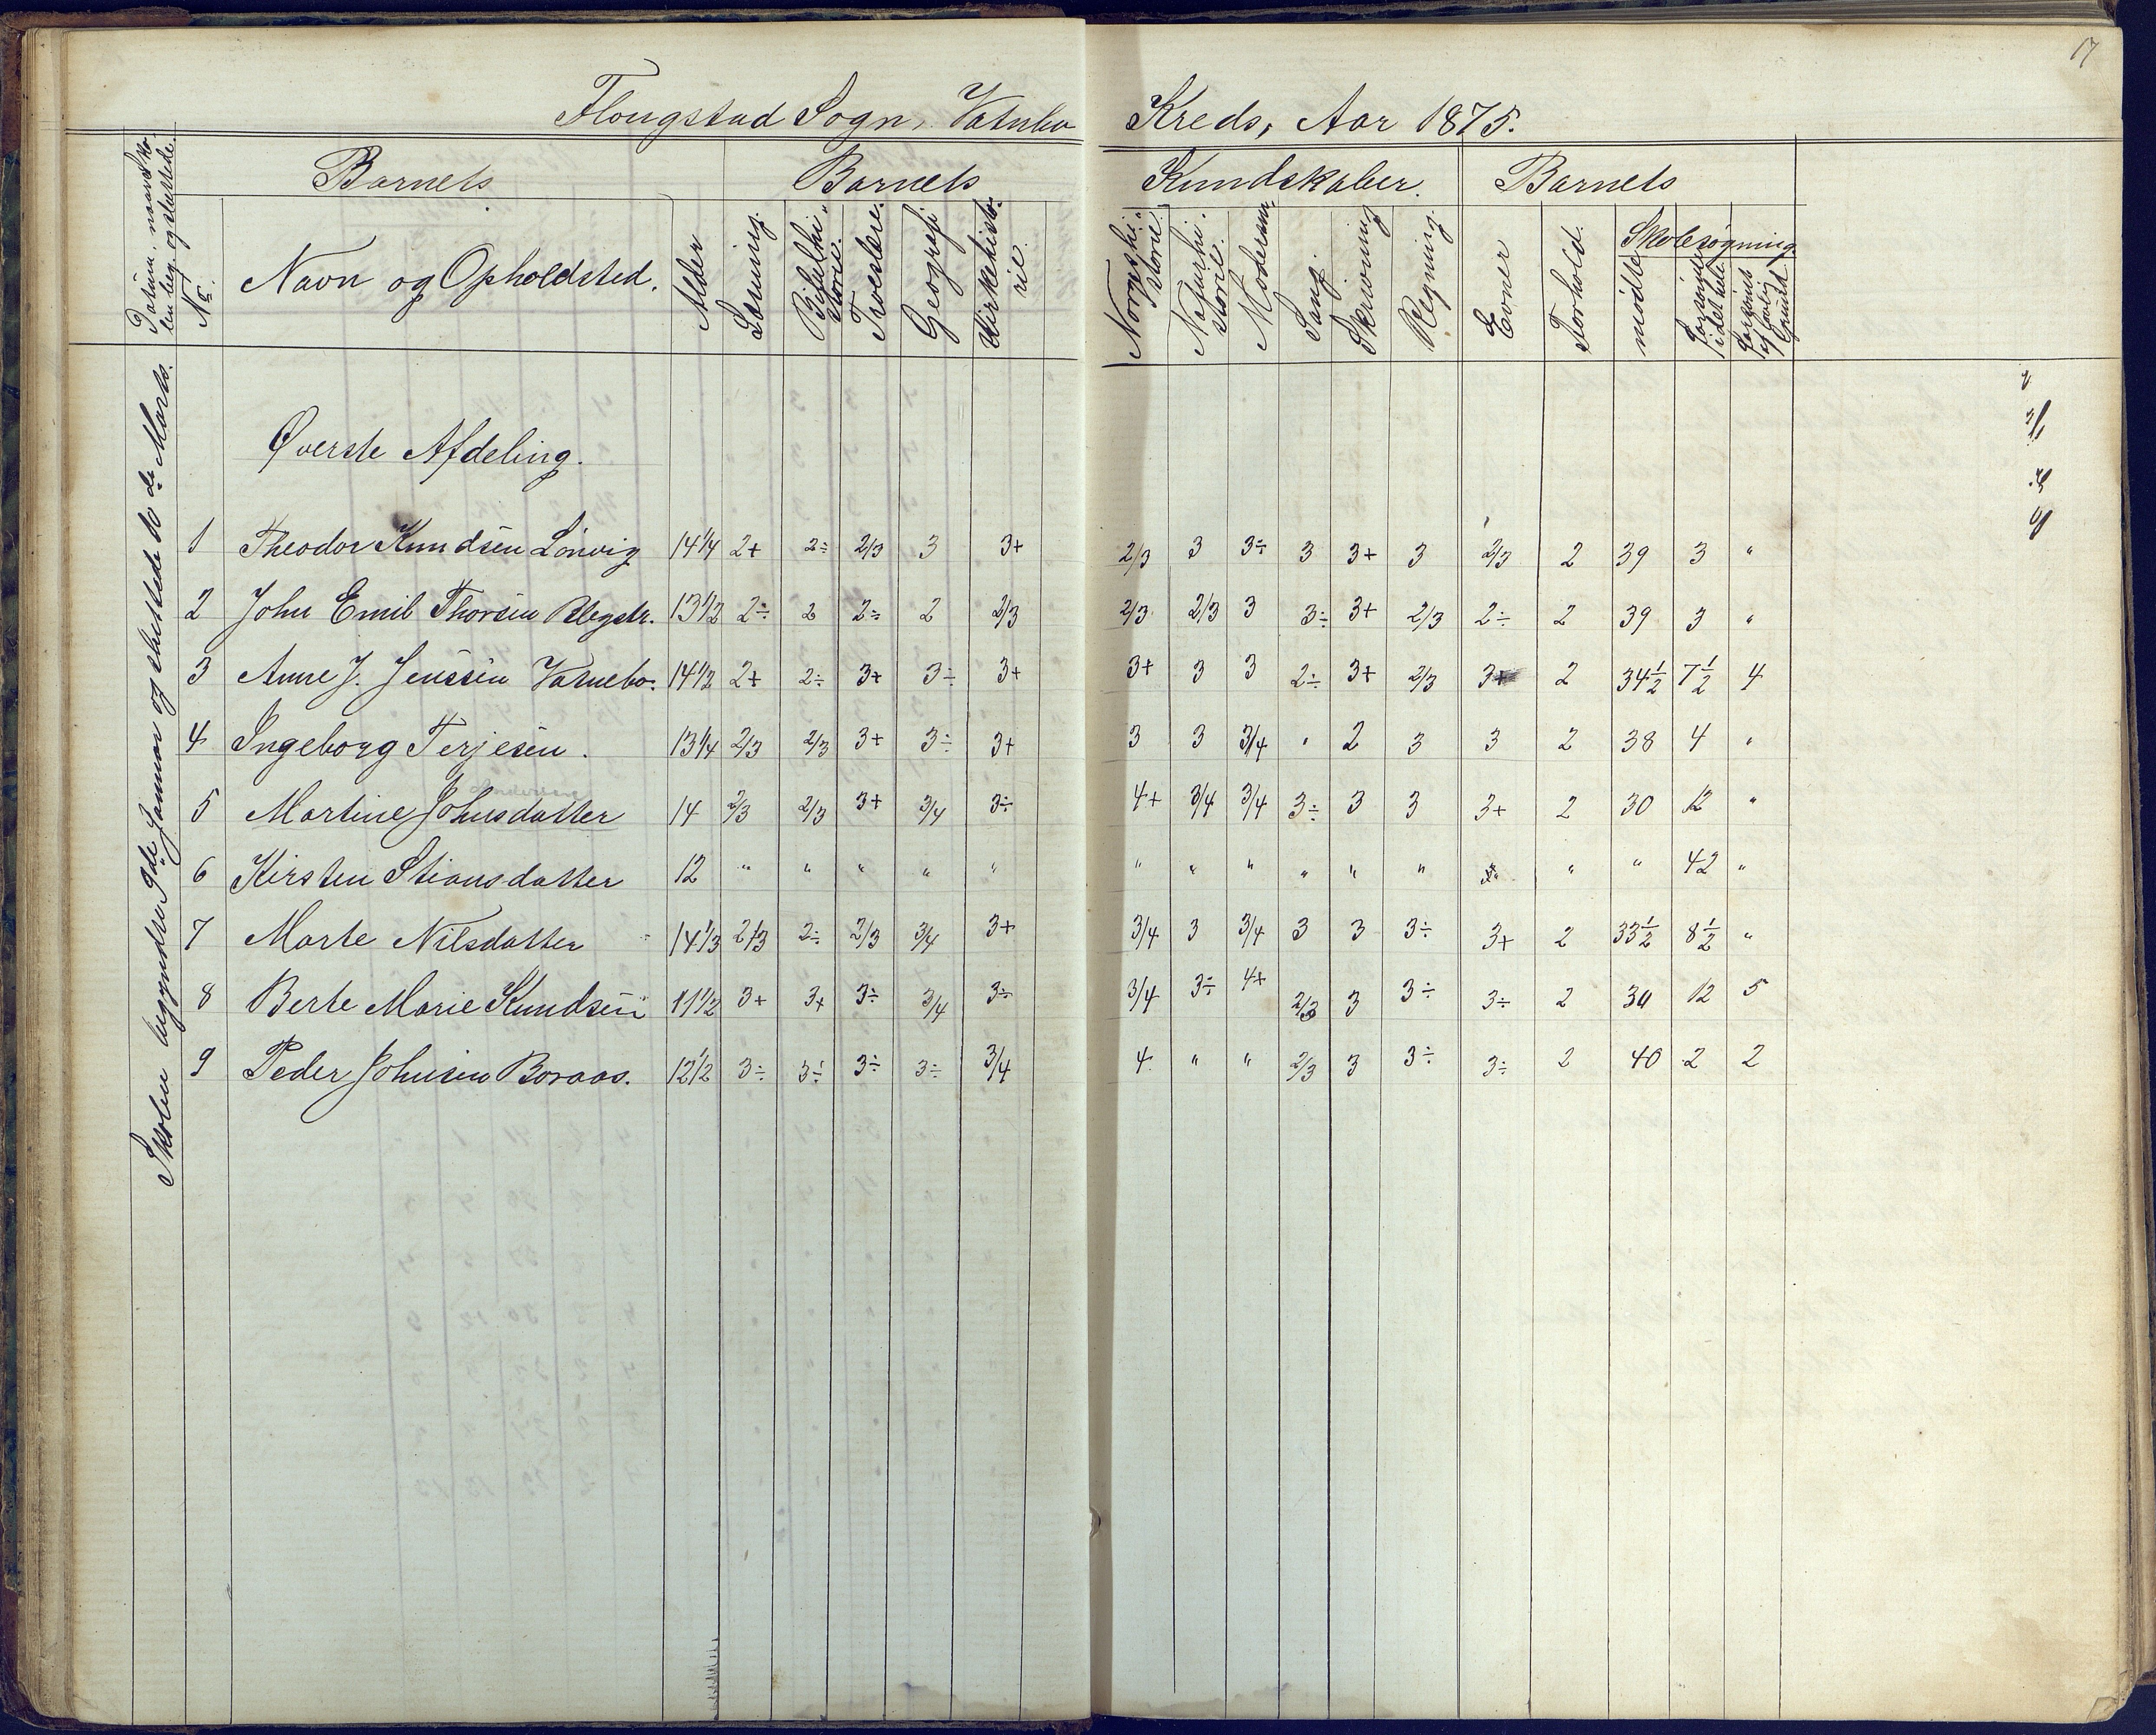 17
Flougstad Sogn, Vatnbo Kreds, Aar 1875.
Datum, naar Skolen beg. og sluttede.
Barnets Barnets Kundskaber. Barnets
No. Navn og Opholdsted. Alder Læsning. Bibelhistorie. Troeslære. Geografi Kirkehistorie. Norgeshistorie. Naturhistorie. Modersm. Sang. Skrivning Regning. Evner Forhold. Skolesøgning
mødte Forsømte i det hele Forsømt af lovlig Grund
Skolen begyndte 9de Januar og sluttede 10de Marts.
Øverste Afdeling.
1 Theodor Knudsen Lönvig 14 1/4 2+ 2÷ 2/3 3 3+ 2/3 3 3÷ 3 3+ 3 2/3 2 39 3 "
2 John Emil Thorsen Blegstr. 13 1/2 2÷ 2 2÷ 2 2/3 2/3 2/3 3 3÷ 3+ 2/3 2÷ 2 39 3 "
3 Anne J. Jenssen Vatnebo. 14 1/2 2+ 2÷ 3+ 3÷ 3+ 3+ 3 3 2÷ 3+ 2/3 3+ 2 34 1/2 7 1/2 4
4 Ingeborg Terjesen. 13 1/4 2/3 2/3 3+ 3÷ 3+ 3 3 3/4 " 2 3 3 2 38 4 "
5 Martine Johnsdatter 14 2/3 2/3 3+ 3/4 3÷ 4+ 3/4 3/4 3÷ 3 3 3+ 2 30 12 "
6 Kirsten Stiansdatter 12 " " " " " " " " " " " " " " 42 "
7 Marte Nilsdatter 14 1/3 2/3 2÷ 2/3 3/4 3+ 3/4 3 3/4 3 3 3÷ 3+ 2 33 1/2 8 1/2 "
8 Berte Marie Knudsen 11 1/2 3+ 3+ 3÷ 3/4 3÷ 3/4 3÷ 4+ 2/3 3 3÷ 3÷ 2 30 12 5
9 Peder Johnsen Boraas. 12 1/2 3÷ 3÷ 3÷ 3÷ 3/4 4 " " 2/3 3 3÷ 3÷ 2 40 2 2